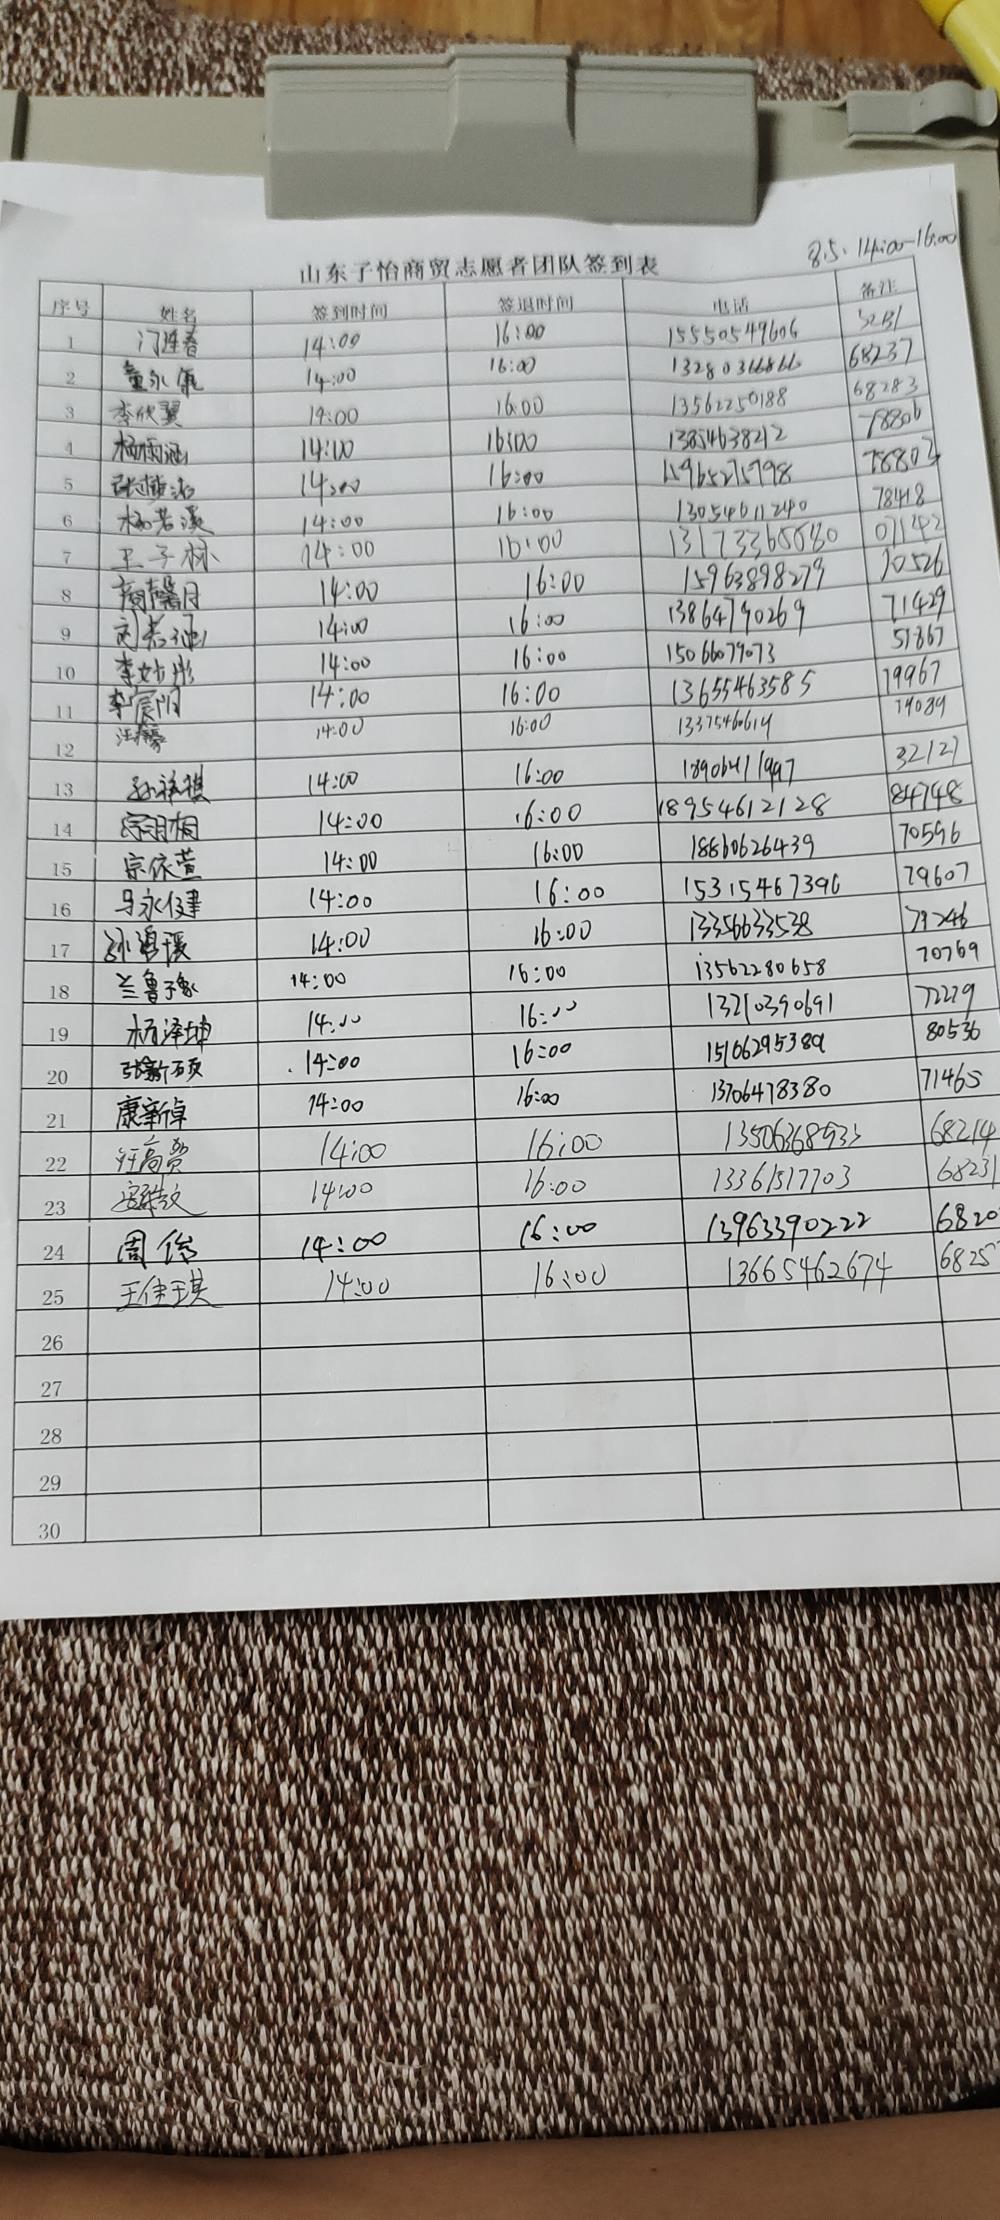 8.5. 14:00-16:00
山东子怡商贸志愿者团队签到表
序号 姓名 签到时间 签退时间 电话 备注
1 门连春 14:00 16:00 15550549606
2 14:00 16:00 13280366866 68237
3 李欣翼 14:00 16:00 13562250188 68283
4 杨雨涵 14:00 16:00 13854638212 78806
5 14:00 16:00 15965275798 78803
6 杨若溪 14:00 16:00 13054611240 78418
7 王子林 14:00 16:00 07142
8 商馨月 14:00 16:00 15963898279 70526
9 刘若涵 14:00 16:00 13864790269 71429
10 李妙彤 14:00 16:00 15066079073 51867
11 李宸阳 14:00 16:00 13655463585 79967
12 14:00 16:00
13 孙祥祺 14:00 16:00 18906411997 32127
14 宗羽桐 14:00 16:00 18954612128 84748
15 宗依萱 14:00 16:00 18860626439 70596
16 马永健 14:00 16:00 15315467396 79607
17 14:00 16:00 13356633538 79246
18 兰鲁豫 14:00 16:00 13562280658 70769
19 杨泽坤 14:00 16:00 13210390691 72279
20 张新硕 14:00 16:00 15166295389 80536
21 康新卓 14:00 16:00 13706478380 71465
22 14:00 16:00 68214
23 14:00 16:00 13361517703 68231
24 周俗 14:00 16:00 13963390222 6820
25 王佳琪 14:00 16:00 13665462674 6825
26
27
28
29
30